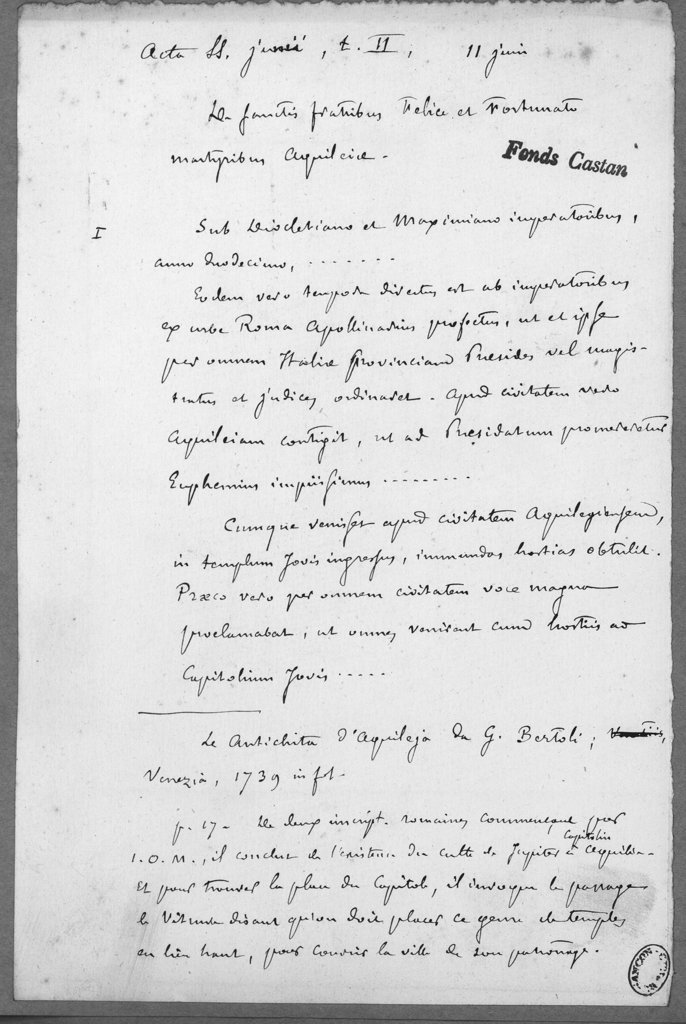 Acta SS. junii, t. II, 11 juin
De sanctis fratribus Felice et Fortunato
martyribus Aquileiæ.
Fonds Castan
I
Sub Diocletiano et Maximiano imperatoribus,
anno duodecimo, ........
Eodem vero tempore directus est ab imperatoribus
ex urbe Roma Apollinarius profectus, ut et ipse
per omnem Italiæ provinciam Præsides vel magis-
tratus et judices ordinaret. Apud civitatem vero
Aquileiam contigit, ut ad Præsidatum promereretur
Euphemius impiissimus .........
Cumque venisset apud civitatem Aquilegiensem,
in templum Jovis ingressus, immundas hostias obtulit.
Præco vero per omnem civitatem voce magna
proclamabat, ut omnes venirent cum hostiis ad
Capitolium Jovis .....
Le Antichita d'Aquileja da G. Bertoli;
Venezia, 1739 in fol.
p. 17. De deux inscript. romaines commençant par
I.O.M., il conclut de l'existence du culte de Jupiter Capitolin à Aquilée.
Et pour trouver la place du Capitole, il invoque le passage
de Vitruve disant qu'on doit placer ce genre de temples
en lieu haut, pour couvrir la ville de son patronage.